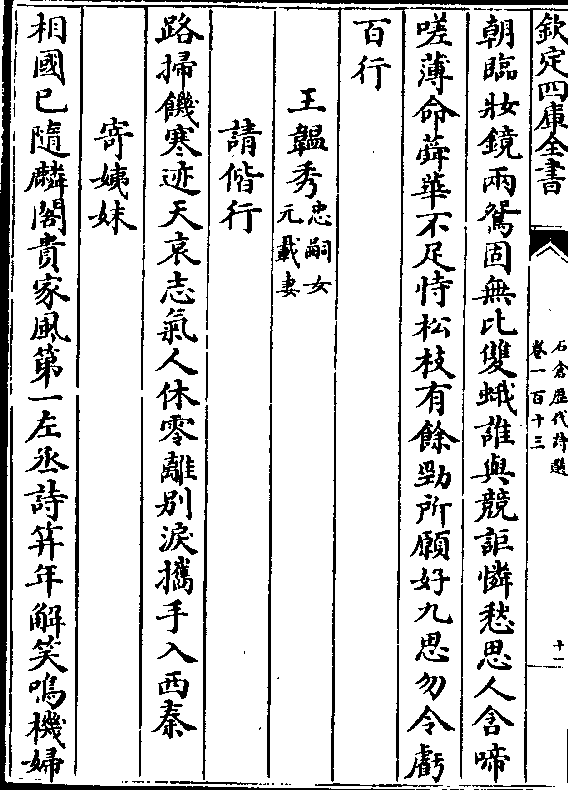 欽定四庫全書
石倉歷代詩選
卷一百十三
十一
朝臨妝鏡兩鴛固無比雙蛾誰與競詎憐愁思人含啼
嗟薄命蕣華不足恃松枝有餘勁所願好九思勿令虧
百行
王韞秀忠嗣女元載妻
請偕行
路掃饑寒迹天哀志氣人休零離別淚攜手入西秦
寄姨妹
相國已隨麟閣貴家風第一左丞詩笄年解笑鳴機婦